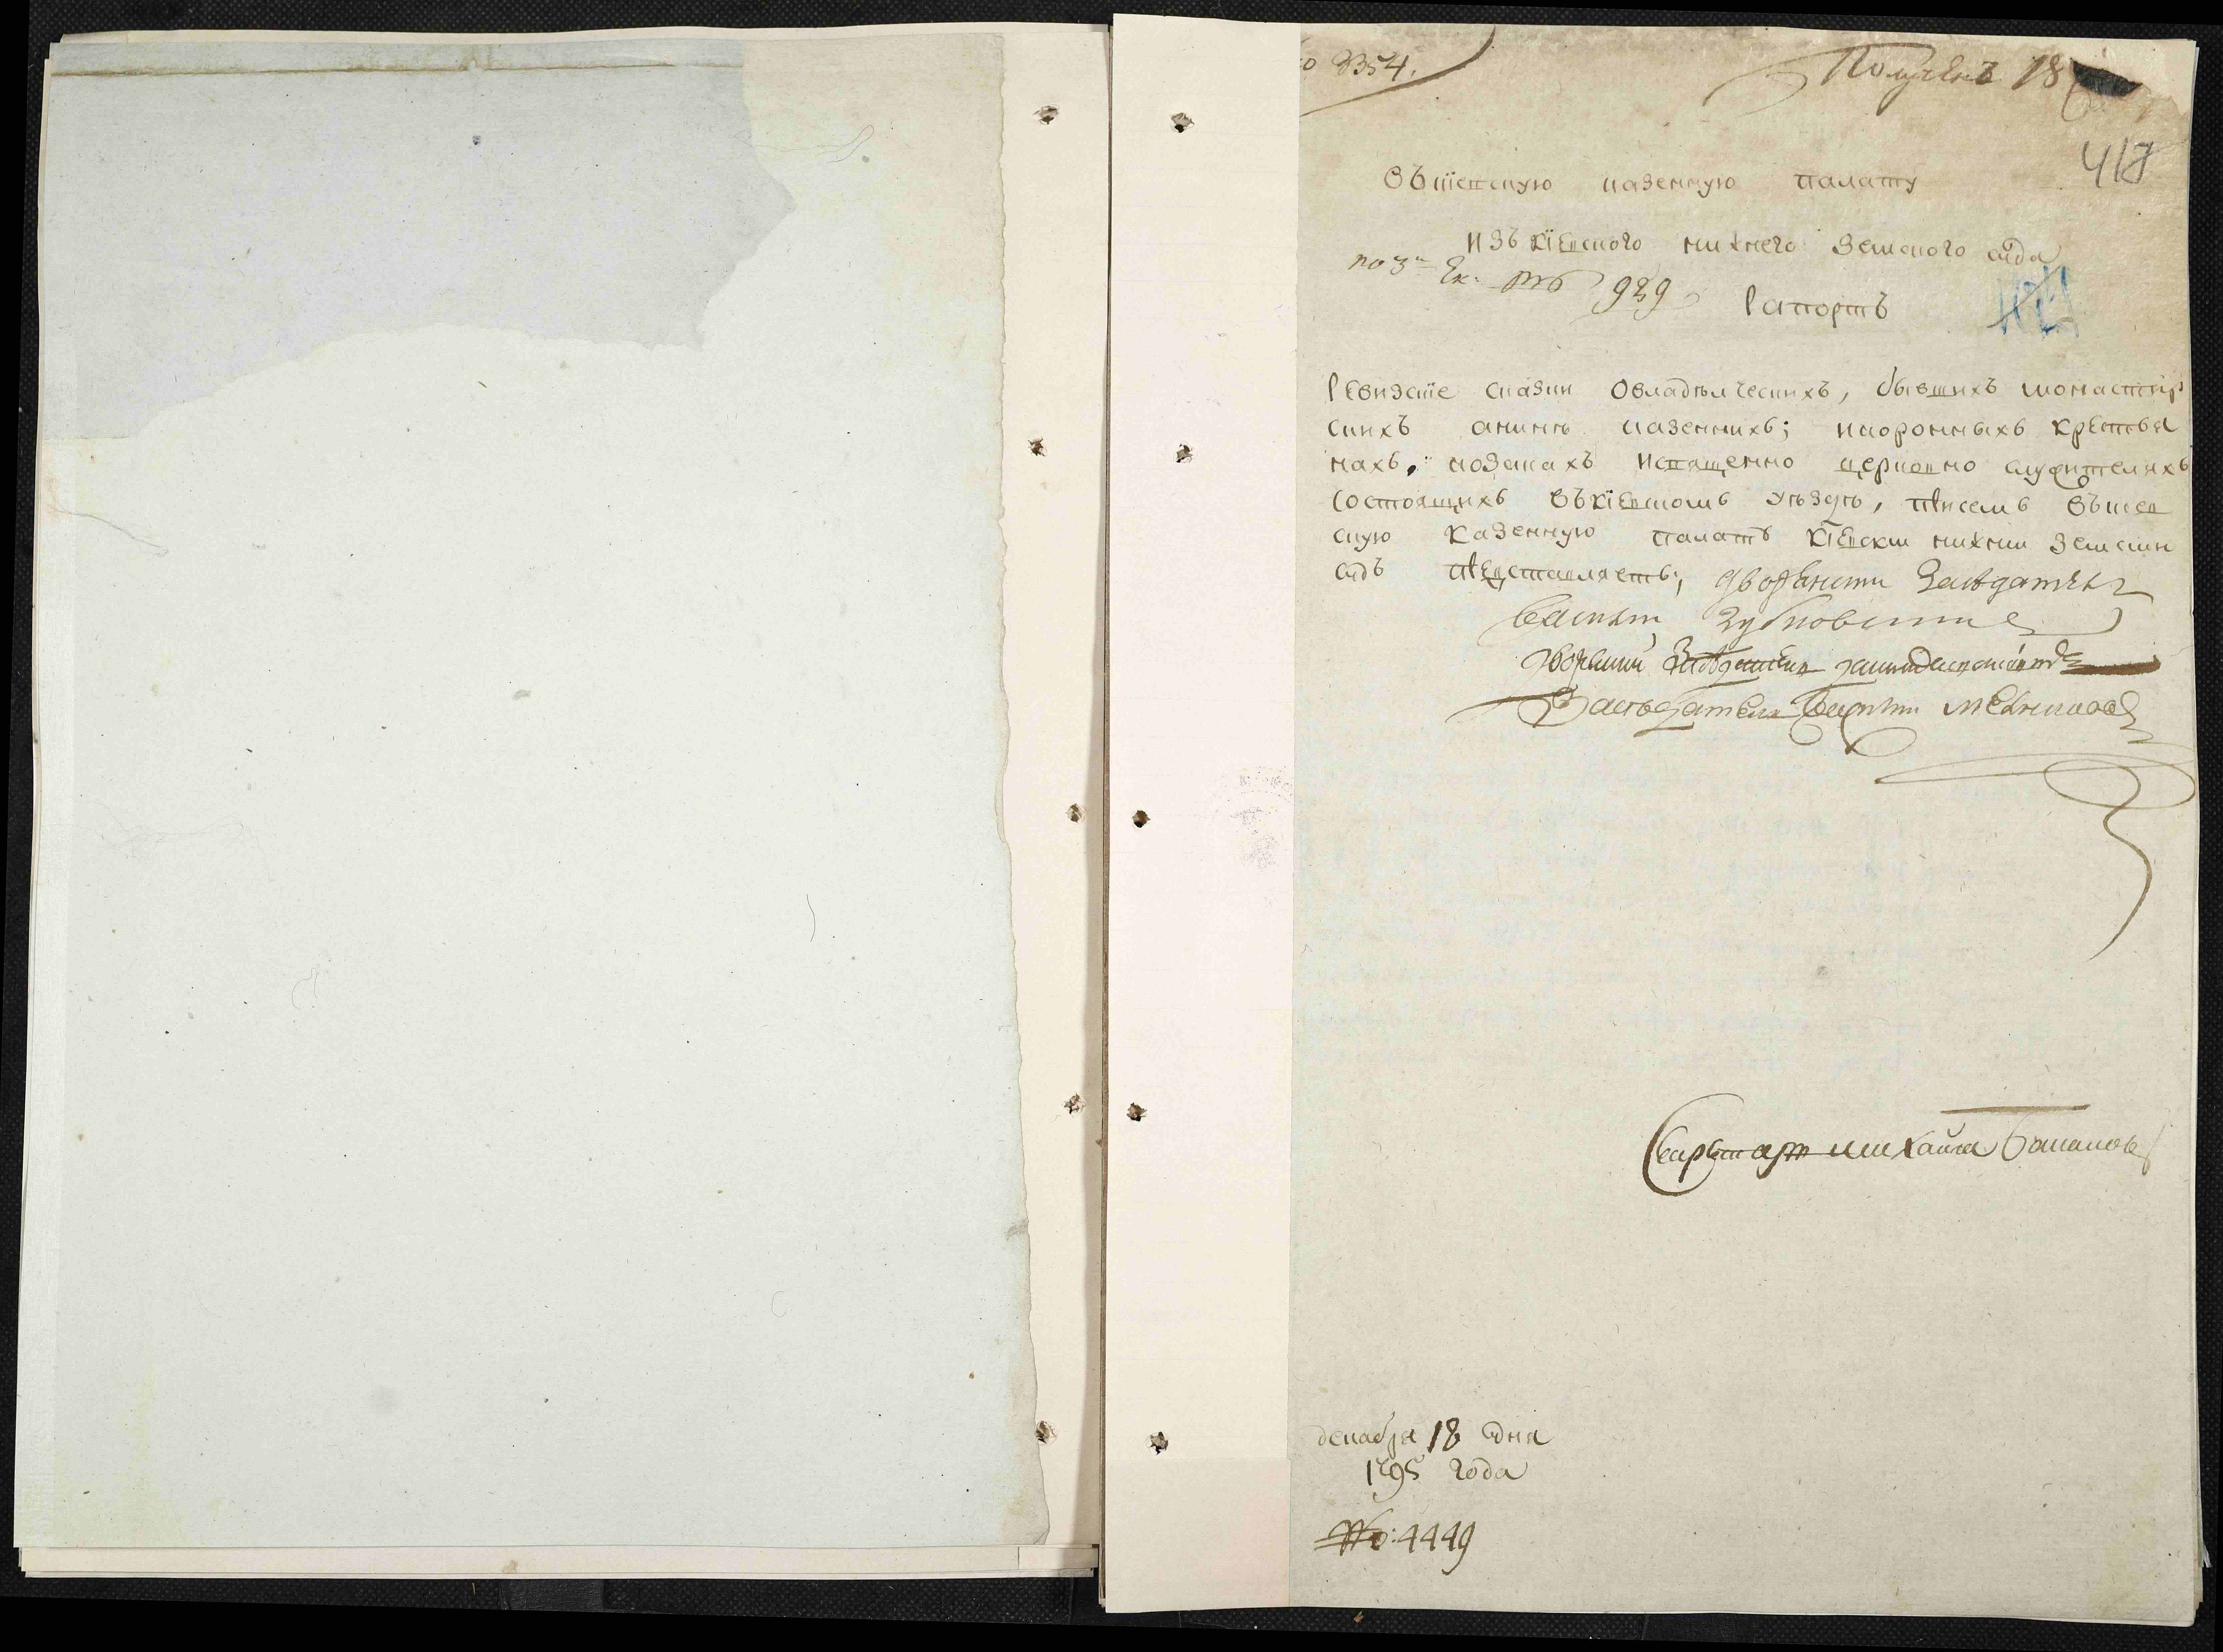 № 3354.
Полученъ 18
417
Въкіевскую казенную палату
Изъ кіевского нижнего земского суда
по 3й Эк: № 929
Рапортъ
Ревизские сказки Овладѣлческихъ, бывшихъ монастир
скихъ анинѣ казеннихъ; икоронныхъ крестья
нахъ, козакахъ исвященно церковно служителяхъ
состоящихъ Въкіевскомъ уѣздѣ, при семъ Въкиев
скую казенную палатъ кіевски нижни земски
судъ представляетъ; дворянски Засѣдатель
василий Зубковски
дворянски Засѣдатель
Засѣдатель
Секретарь михайла
декабря 18 дня
1795 года
№: 4449